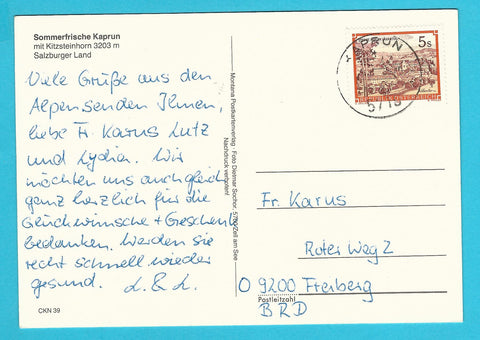 Sommerfrische Kaprun
mit Kitzsteinhorn 3203 m
Salzburger Land
Viele Grüße aus den
Alpen senden Ihnen,
liebe Fr. Karus Lutz
und Lydia. Wir
möchten uns auch gleich
ganz herzlich für die
Glückwünsche + Geschenke
bedanken. Werden sie
recht schnell wieder
gesund. L. & L.
CKN 39
Montania Postkartenverlag · Foto Dietmar Sochor, 5700 Zell am See
Nachdruck verboten!
5s
REPUBLIK ÖSTERREICH
KAPRUN
5710
Fr. Karus
Roter Weg 2
O 9200 Freiberg
Postleitzahl
BRD